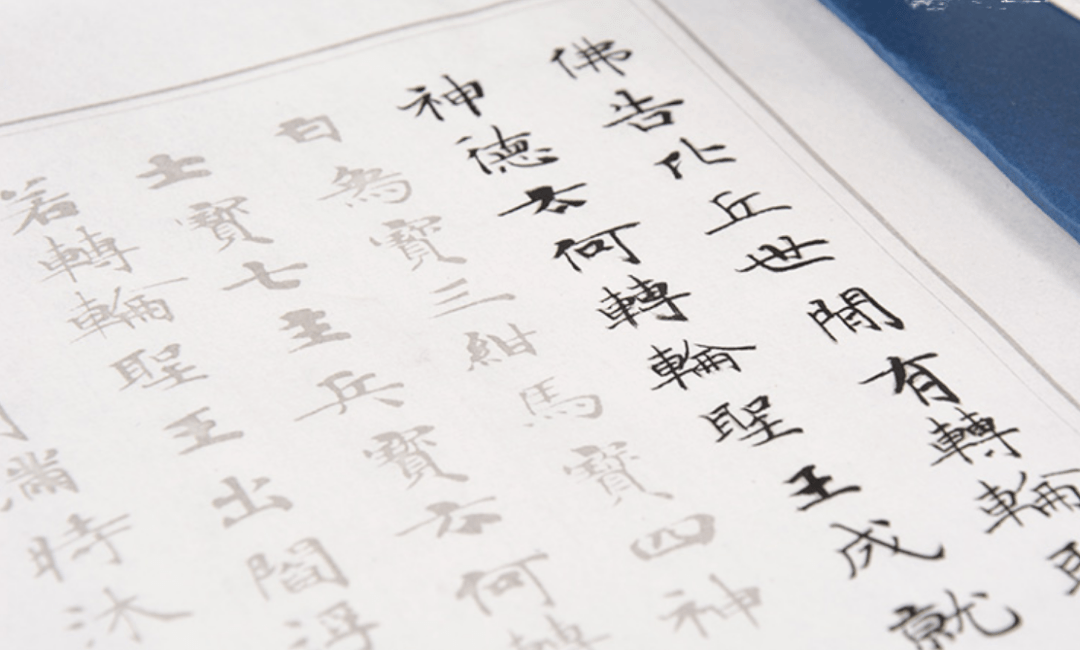 佛告比丘世間有轉輪
神德云何轉輪聖王成就
白象寶三紺馬寶四神
士寶七主兵寶云何轉
若轉輪聖王出閻浮
滿時沐